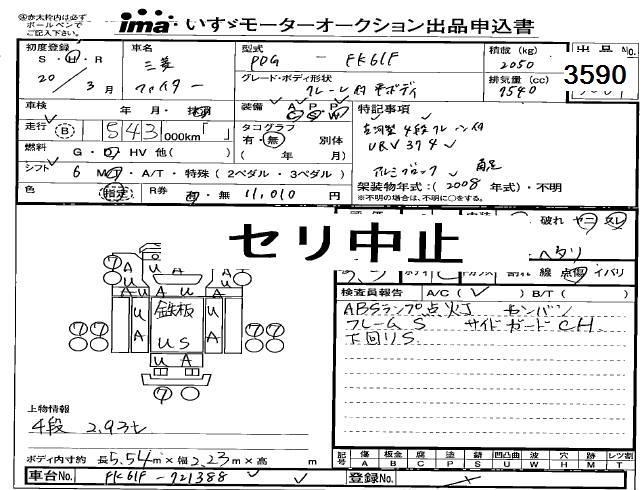 ㊟赤太枠内は必ず
ボールペンで
ご記入下さい。
ima いすゞモーターオークション出品申込書
初度登録 車名 型式 積載 (kg) 出品No.
S・H・R 三菱 PDG - FK61F 2050
20年 3月 ファイター グレード・ボディ形状 排気量 (cc) 3590
クレーン付 平ボディ 7540
車検 年 月・検 装備 A P P 特記事項
C S W
走行 B 543 000km「 」 タコグラフ 古河製 4段クレーン付
有・無 別体 URV374
燃料 G・D・HV 他( ) ( 年 月) アルミブロック 角足
シフト 6 MT・A/T・特殊 (2ペダル・3ペダル)
架装物年式:( 2008 年式)・不明
色 指定 R券 有・無 11,010 円 ※不明の場合は、不明に○をする。
破れ ヤニ スレ
セリ中止
ヘタリ
線 点傷 イバリ
検査員報告 A/C( ✓ ) B/T( )
ABSランプ点灯 センバン
フレームS サイドガードCH
下回りS
ワ A A
U U
A U A U A
U 鉄板 U
A U S A
U A
ワ ワ
上物情報
4段 2.93t
ボディ内寸約 長5.54m×幅2.23m×高 m
記号 傷 板金 腐 塗 錆 凹凸曲 波 穴 跡 レツ要
A B C P S U W H M T
車台No. FK61F - 721388 登録No.